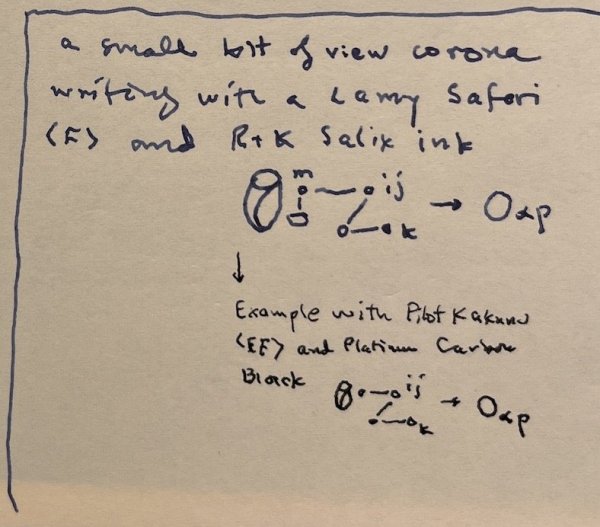 a small bit of view corona
writing with a Lamy Safari
<F> and R+K Salix ink
m ij → O αp
k
↓
Example with Pilot Kakuno
<EF> and Platinum Carbon
Black
ij → O αp
k